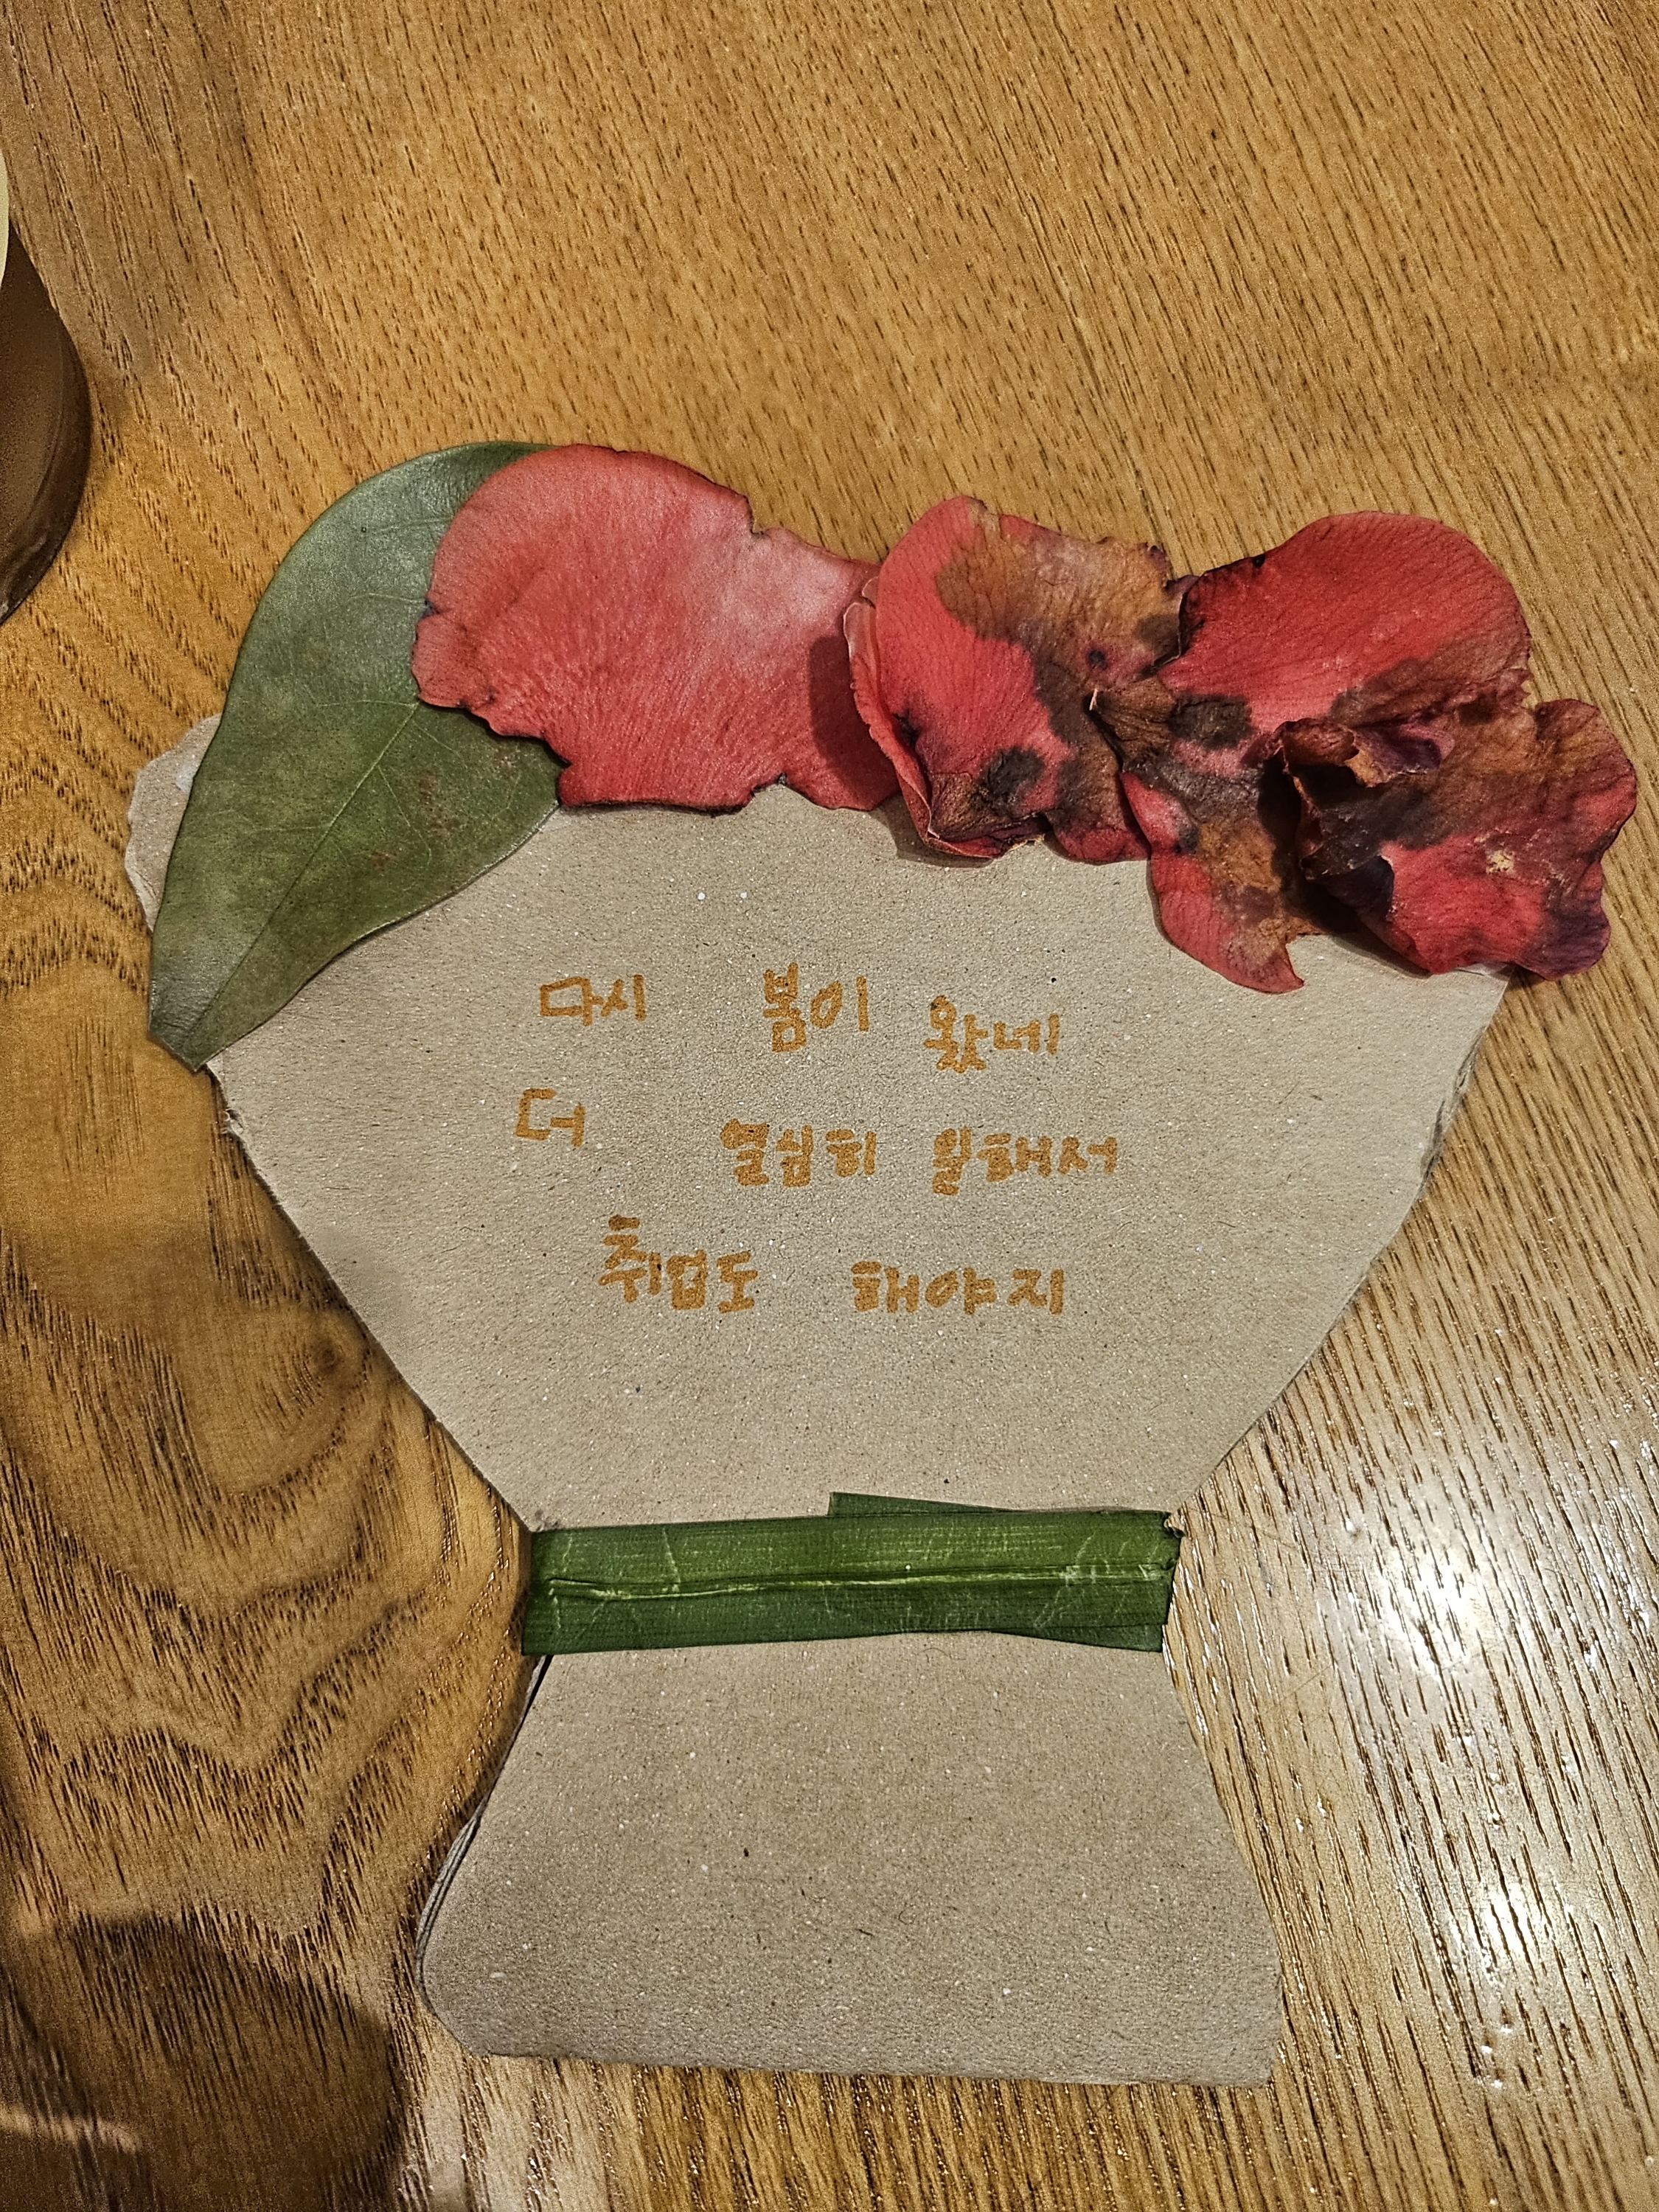 다시 봄이 왔네
더 열심히 일해서
취업도 해야지